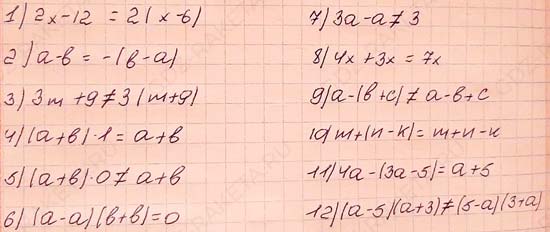 1) 2x-12 = 2(x-6)
2) a-b = -(b-a)
3) 3m+9≠3(m+9)
4) (a+b)·1=a+b
5) (a+b)·0≠a+b
6) (a-a)(b+b)=0
7) 3a-a≠3
8) 4x+3x=7x
9) a-(b+c)≠a-b+c
10) m+(n-k)=m+n-k
11) 4a-(3a-5)=a+5
12) (a-5)(a+3)≠(5-a)(3+a)